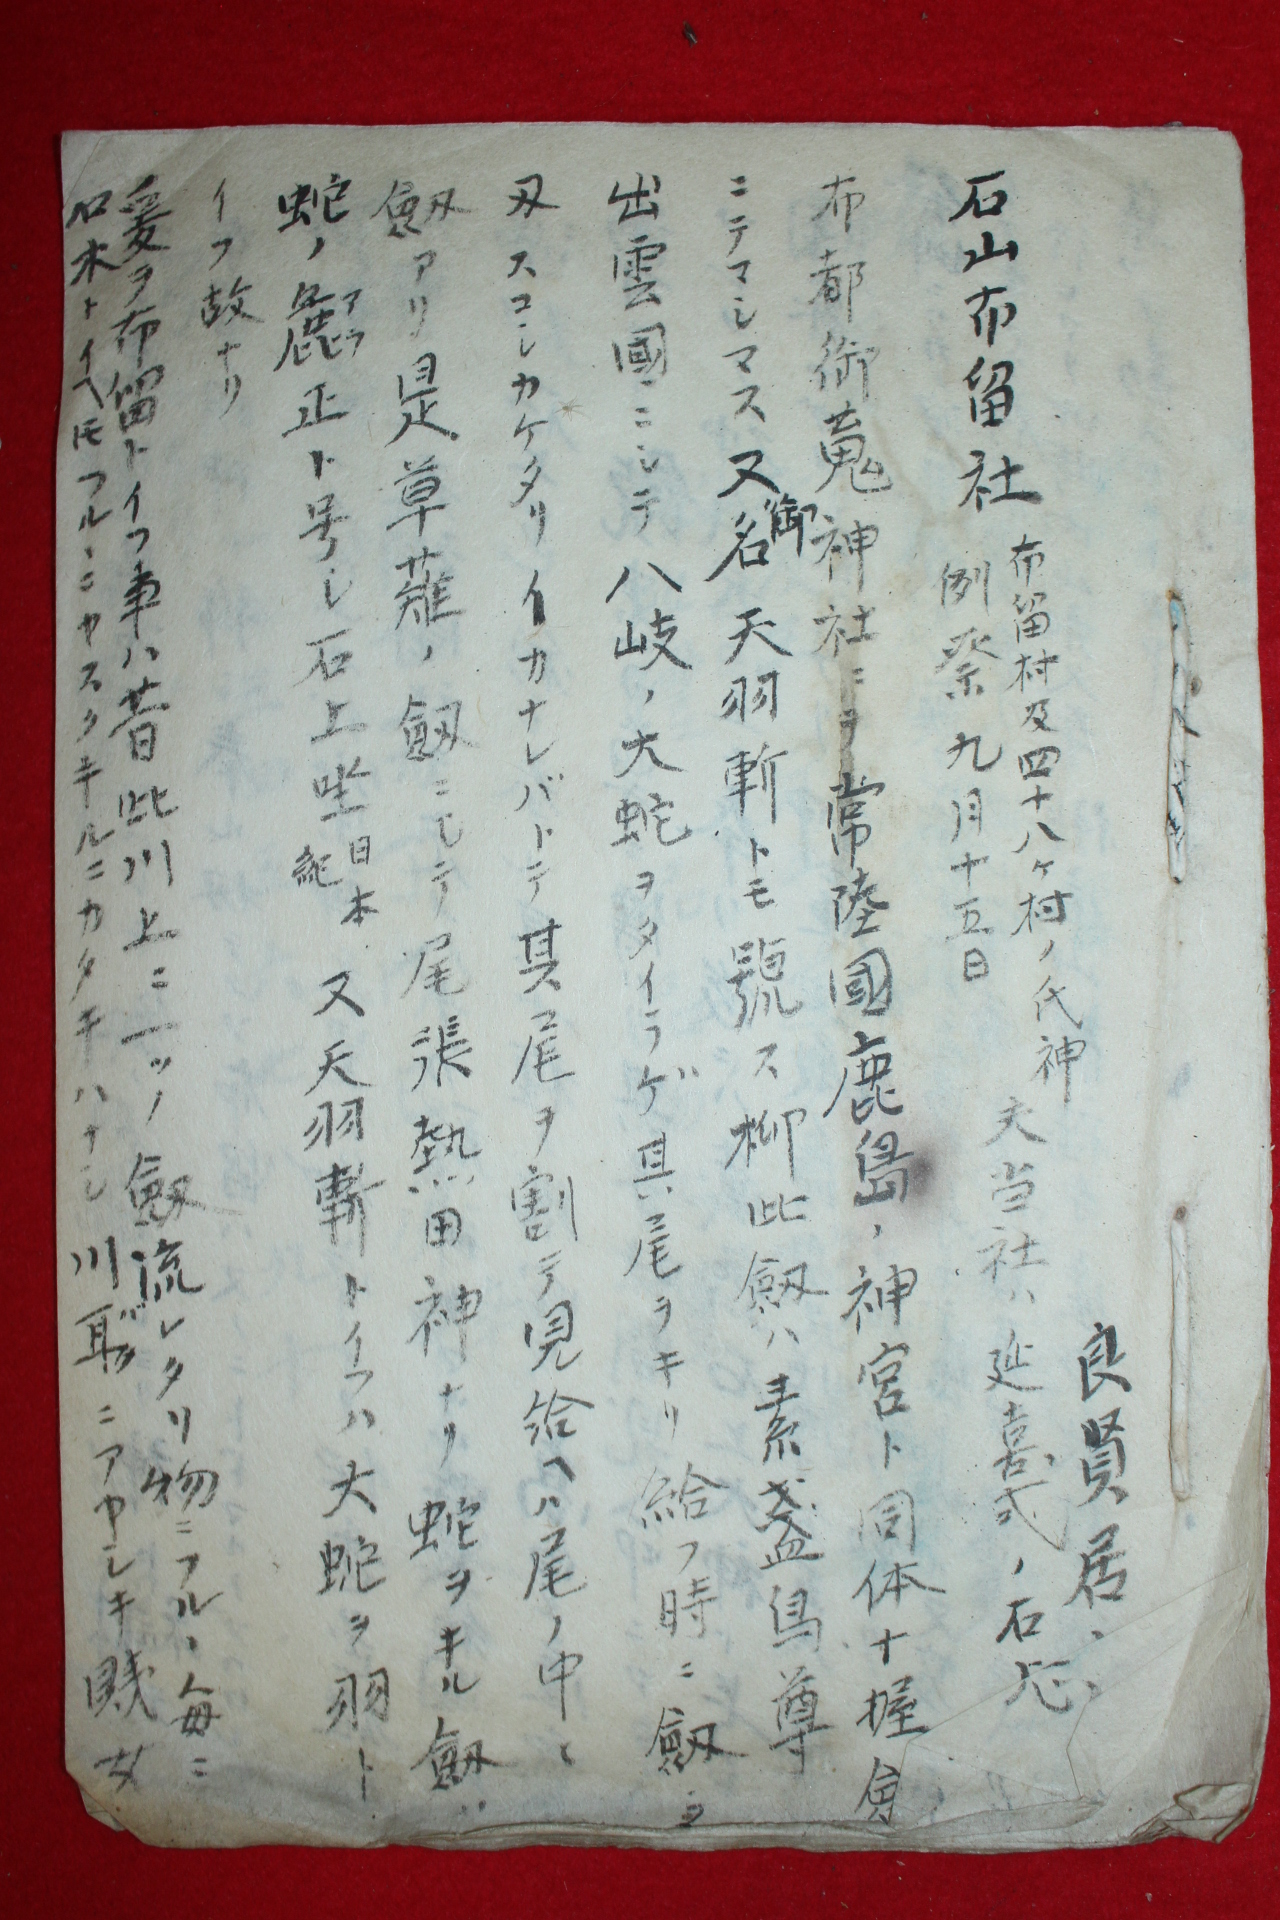 良賢居
石山布留社
布留村及四十八ヶ村ノ氏神
例祭九月十五日
夫当社ハ延喜式ノ石
布都御䰟神社ニヲ常陸國鹿島ノ神宮ト同体十握
ニテマシマス又御名天羽斬トモ號ス抑此劔ハ素盞烏尊
出雲國ニシテ八岐ノ大蛇ヲタイラゲ其尾ヲキリ給フ時ニ劔ヲ
刄スコシカケタリイカナレバトテ其尾ヲ割テ見給ヘハ尾ノ中ニ
劔アリ是草薙ノ劔ニシテ尾張熱田神ナリ蛇ヲキル劔
蛇ノ麁アラ正ト号シ石上坐日本紀又天羽斬トイフハ大蛇ヲ羽ト
イフ故ナリ
爰ヲ布留トイフ事ハ昔此川上ニ一ツノ劔流レタリ物ニフルヽ毎ニ
石木トイヘ𪜈フルヽニヤスクキルニカタキハナシ川耻ニアヤシキ賎女